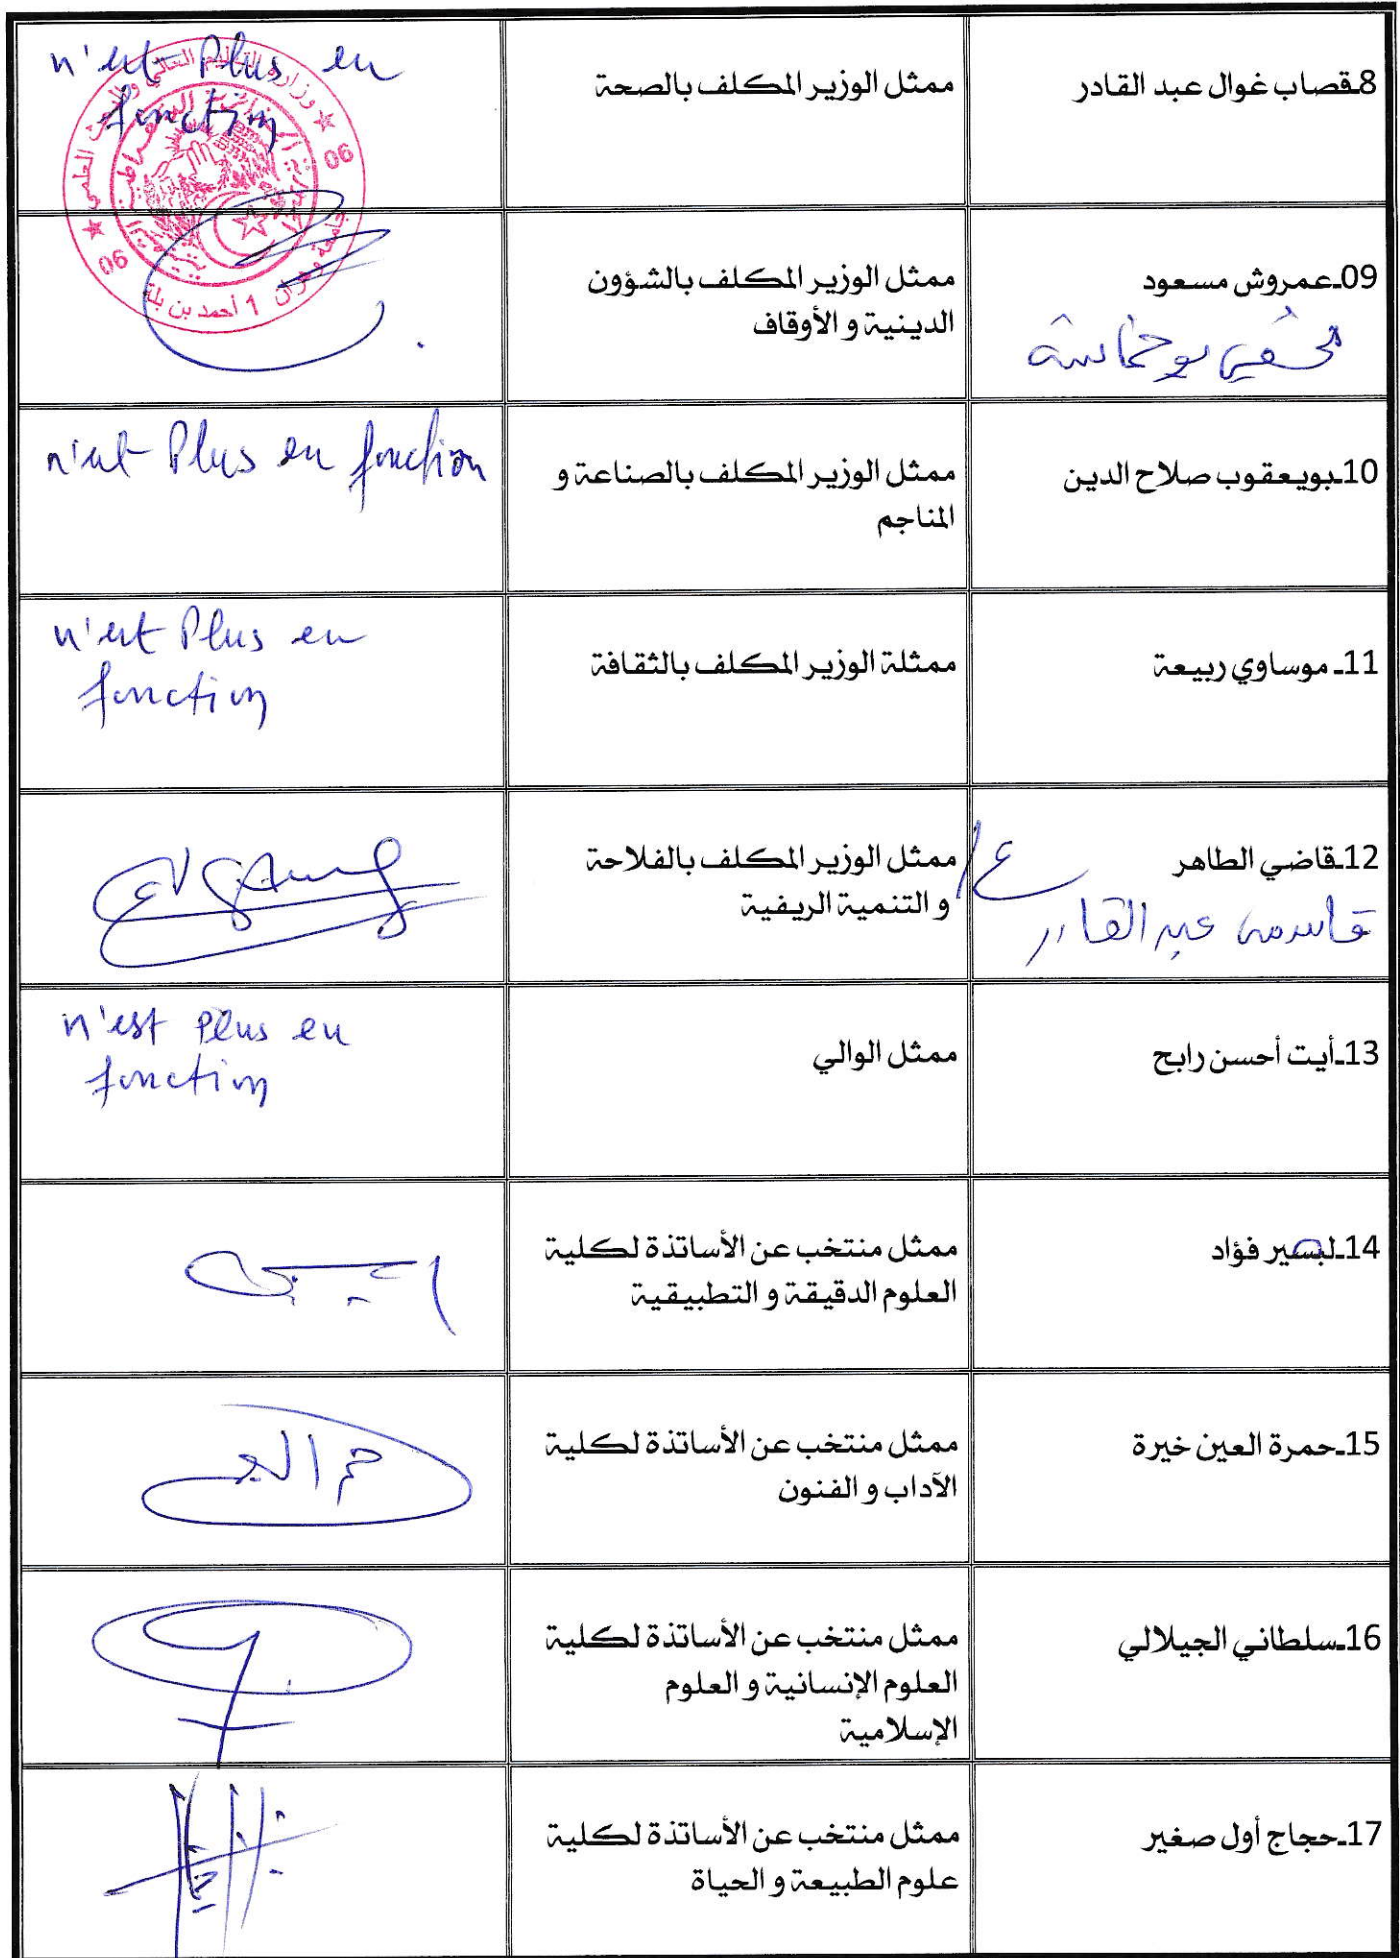 8ـقصاب غوال عبد القادر
ممثل الوزير المكلف بالصحة
n'est Plus en
fonction
وزارة التعليم العالي والبحث العلمي
06
06
جامعة وهران 1 أحمد بن بلة
09ـعمروش مسعود
ممثل الوزير المكلف بالشؤون
الدينية و الأوقاف
10ـبويعقوب صلاح الدين
ممثل الوزير المكلف بالصناعة و
المناجم
n'est Plus en fonction
11ـ موساوي ربيعة
ممثلة الوزير المكلف بالثقافة
n'est Plus en
fonction
12ـقاضي الطاهر
ع/
عبد القادر
ممثل الوزير المكلف بالفلاحة
و التنمية الريفية
13ـأيت أحسن رابح
ممثل الوالي
n'est Plus en
fonction
14ـلبسير فؤاد
ممثل منتخب عن الأساتذة لكلية
العلوم الدقيقة و التطبيقية
15ـحمرة العين خيرة
ممثل منتخب عن الأساتذة لكلية
الآداب و الفنون
16ـسلطاني الجيلالي
ممثل منتخب عن الأساتذة لكلية
العلوم الإنسانية و العلوم
الإسلامية
17ـحجاج أول صغير
ممثل منتخب عن الأساتذة لكلية
علوم الطبيعة و الحياة